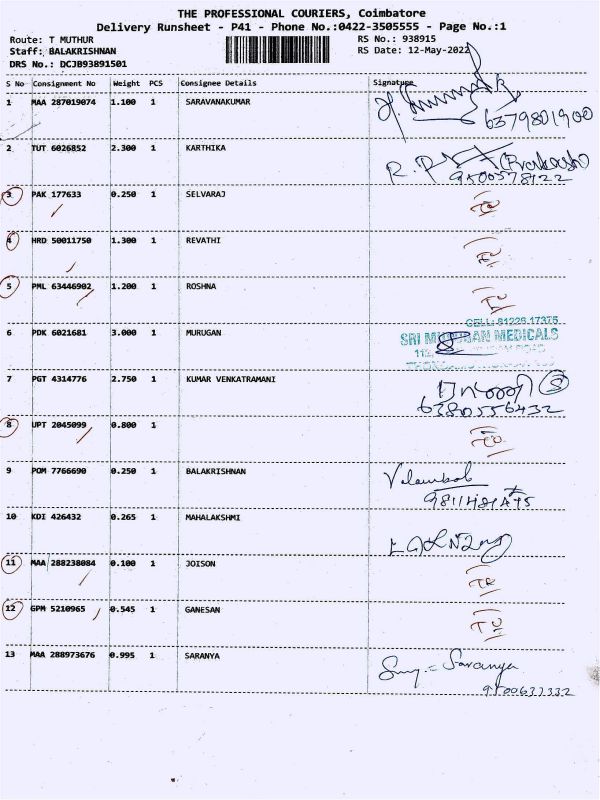 THE PROFESSIONAL COURIERS, Coimbatore
Delivery Runsheet - P41 - Phone No.:0422-3505555 - Page No.:1
Route: T MUTHUR RS No.: 938915
Staff: BALAKRISHNAN RS Date: 12-May-2022
DRS No.: DCJB93891501
S No Consignment No Weight PCS Consignee Details Signature
1 MAA 287019074 1.100 1 SARAVANAKUMAR
6379801900
2 TUT 6026852 2.300 1 KARTHIKA
R. P (Prakash)
9500578122
3 PAK 177633 0.250 1 SELVARAJ
4 HRD 50011750 1.300 1 REVATHI
5 PML 63446902 1.200 1 ROSHNA
CELL: 81228 17375
6 PDK 6021681 3.000 1 MURUGAN SRI MURUGAN MEDICALS
112,
7 PGT 4314776 2.750 1 KUMAR VENKATRAMANI
6380556432
8 UPT 2045099 0.800 1
9 POM 7766690 0.250 1 BALAKRISHNAN
10 KDI 426432 0.265 1 MAHALAKSHMI
11 MAA 288238084 0.100 1 JOISON
12 GPM 5210965 0.545 1 GANESAN
13 MAA 288973676 0.995 1 SARANYA Saranya